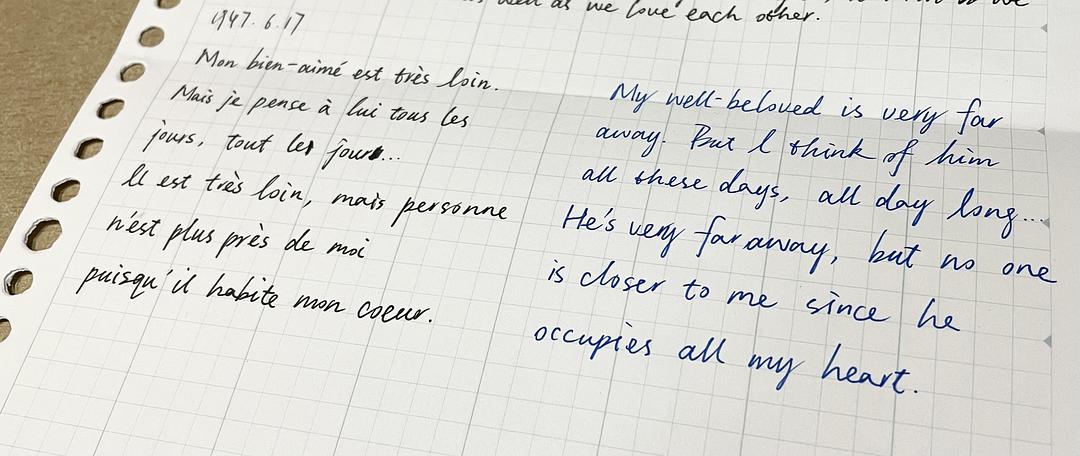 as we love each other.
1947.6.17
Mon bien-aimé est très loin.
Mais je pense à lui tous les
jours, tout les jours...
Il est très loin, mais personne
n'est plus près de moi
puisqu'il habite mon coeur.
My well-beloved is very far
away. But I think of him
all these days, all day long...
He's very far away, but no one
is closer to me since he
occupies all my heart.